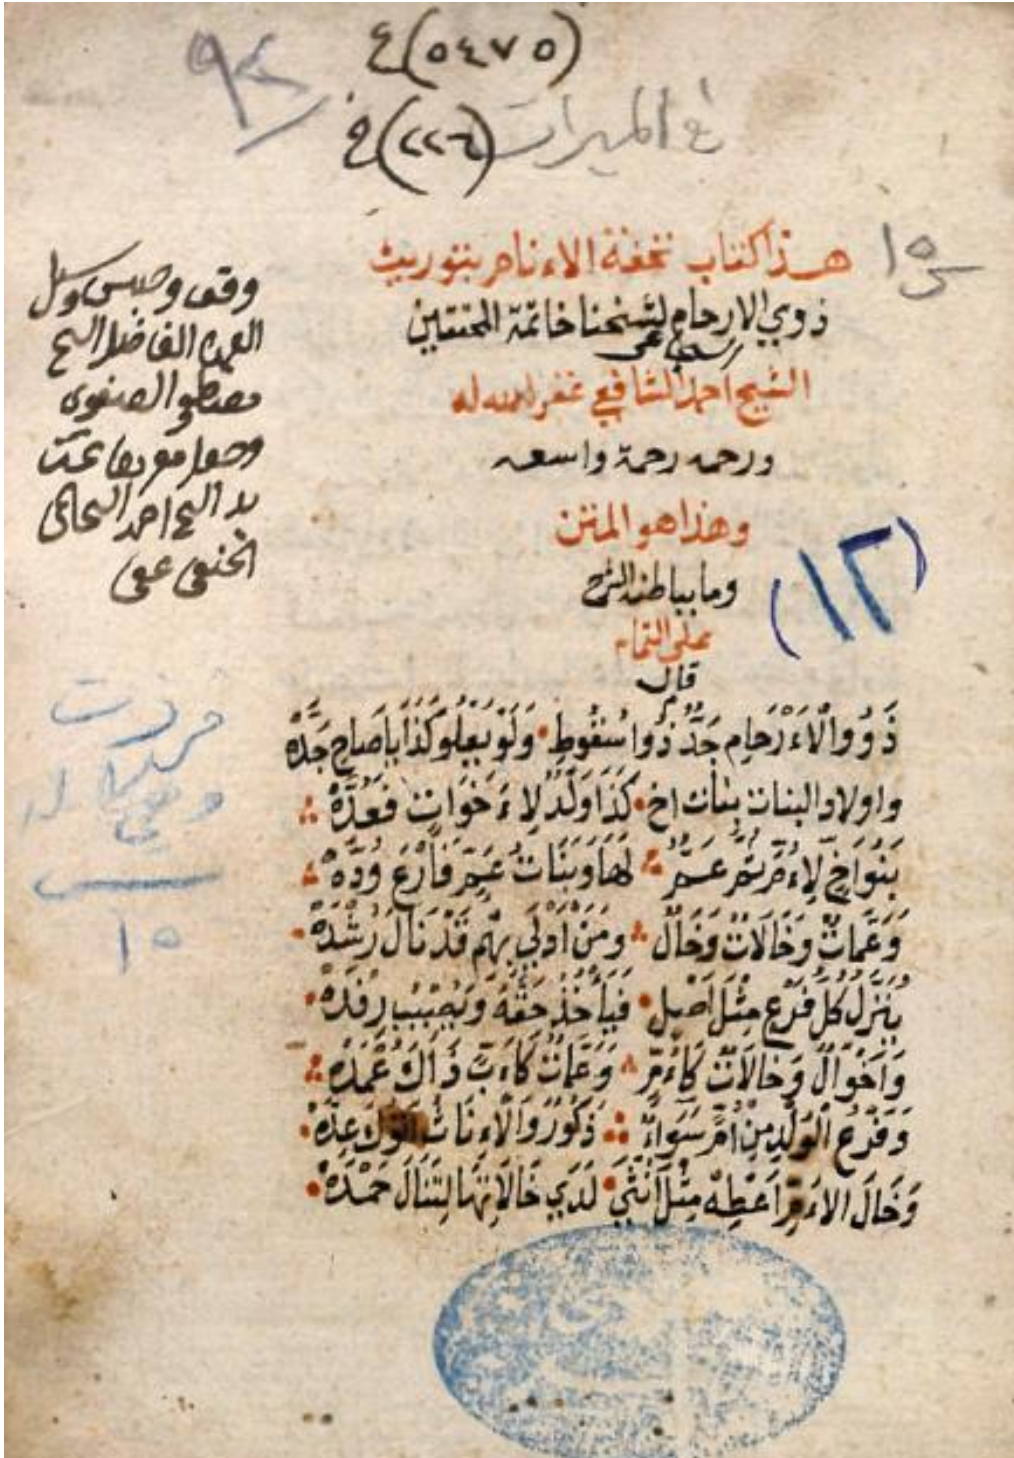 (٥٤٧٥) ع
٩٤
في الميراث
(٢٢٦) خ
١٥
هذا كتاب تحفة الاءنام بتوريث
ذوي الارحام لشيخنا خاتمة المحققين
الشيخ احمد الشافعي غفر الله له
ورحمه رحمة واسعه
وهذا هو المتن
وما بباطنه الشرح
على التمام
قال
وقف وحبس وسبل
العمده الفاضل الشيخ
مصطفى الصفوى
وجعل مقره تحت
يد الشيخ احمد
الحنفى عفى
(١٢)
١٥
ذَوُو الْاءَرْحَامِ جَدٌّ ذُو سُقُوطٍ وَلَوْ يَعْلُو كَذَا يَا صَاحِ جَدَّهْ
واولاد البنات بنات اخ كَذَا وَلَدٌ لِاءَخَوَاتٍ فَعُدَّهْ
بَنُو اَخٍ لِاءُمٍّ ثُمَّ عَمٌّ لَهَا وَبَنَاتُ عَمٍّ فَارْعَ وُدَّهْ
وَعَمَّاتٌ وَخَالَاتٌ وَخَالٌ وَمَنْ اَدْلَى بِهِم قَدْ نَالَ رُشْدَهْ
يُنَزَّلُ كُلُّ فَرْعٍ مِثْلَ اَصْلٍ فَيَأْخُذُ حَقَّهُ وَيُصِيبُ رِفْدَهْ
وَاَخْوَالٌ وَخَالَاتٌ كَاءُمٍّ وَعَمَّاتٌ كَاءَبٍّ ذَاكَ عُمْدَهْ
وَفَرْعُ الْوُلْدِ مِنْ اُمٍّ سَوَاءٌ ذُكُورٌ وَالْاءِنَاثُ عِدَّهْ
وَخَالَ الاءُمِّ اَعْطِهْ مِثْلَ اُنْثَى لَدَي خَالَاتِهَا لِتَنَالَ حَمْدَهْ